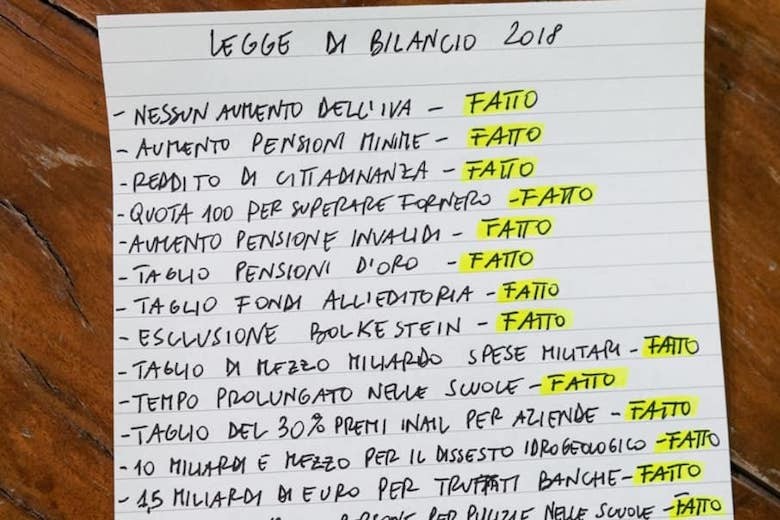 LEGGE DI BILANCIO 2018
- NESSUN AUMENTO DELL'IVA - FATTO
- AUMENTO PENSIONI MINIME - FATTO
- REDDITO DI CITTADINANZA - FATTO
- QUOTA 100 PER SUPERARE FORNERO - FATTO
- AUMENTO PENSIONE INVALIDI - FATTO
- TAGLIO PENSIONI D'ORO - FATTO
- TAGLIO FONDI ALL'EDITORIA - FATTO
- ESCLUSIONE BOLKESTEIN - FATTO
- TAGLIO DI MEZZO MILIARDO SPESE MILITARI - FATTO
- TEMPO PROLUNGATO NELLE SCUOLE - FATTO
- TAGLIO DEL 30% PREMI INAIL PER AZIENDE - FATTO
- 10 MILIARDI E MEZZO PER IL DISSESTO IDROGEOLOGICO - FATTO
- 1,5 MILIARDI DI EURO PER TRUFFATI BANCHE - FATTO
PERSONE PER PULIZIE NELLE SCUOLE - FATTO